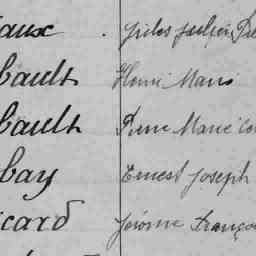 aux . Jules Julien
bault Henri Marie
bault Pierre Marie
bay Ernest Joseph
icard Jérôme Françoi